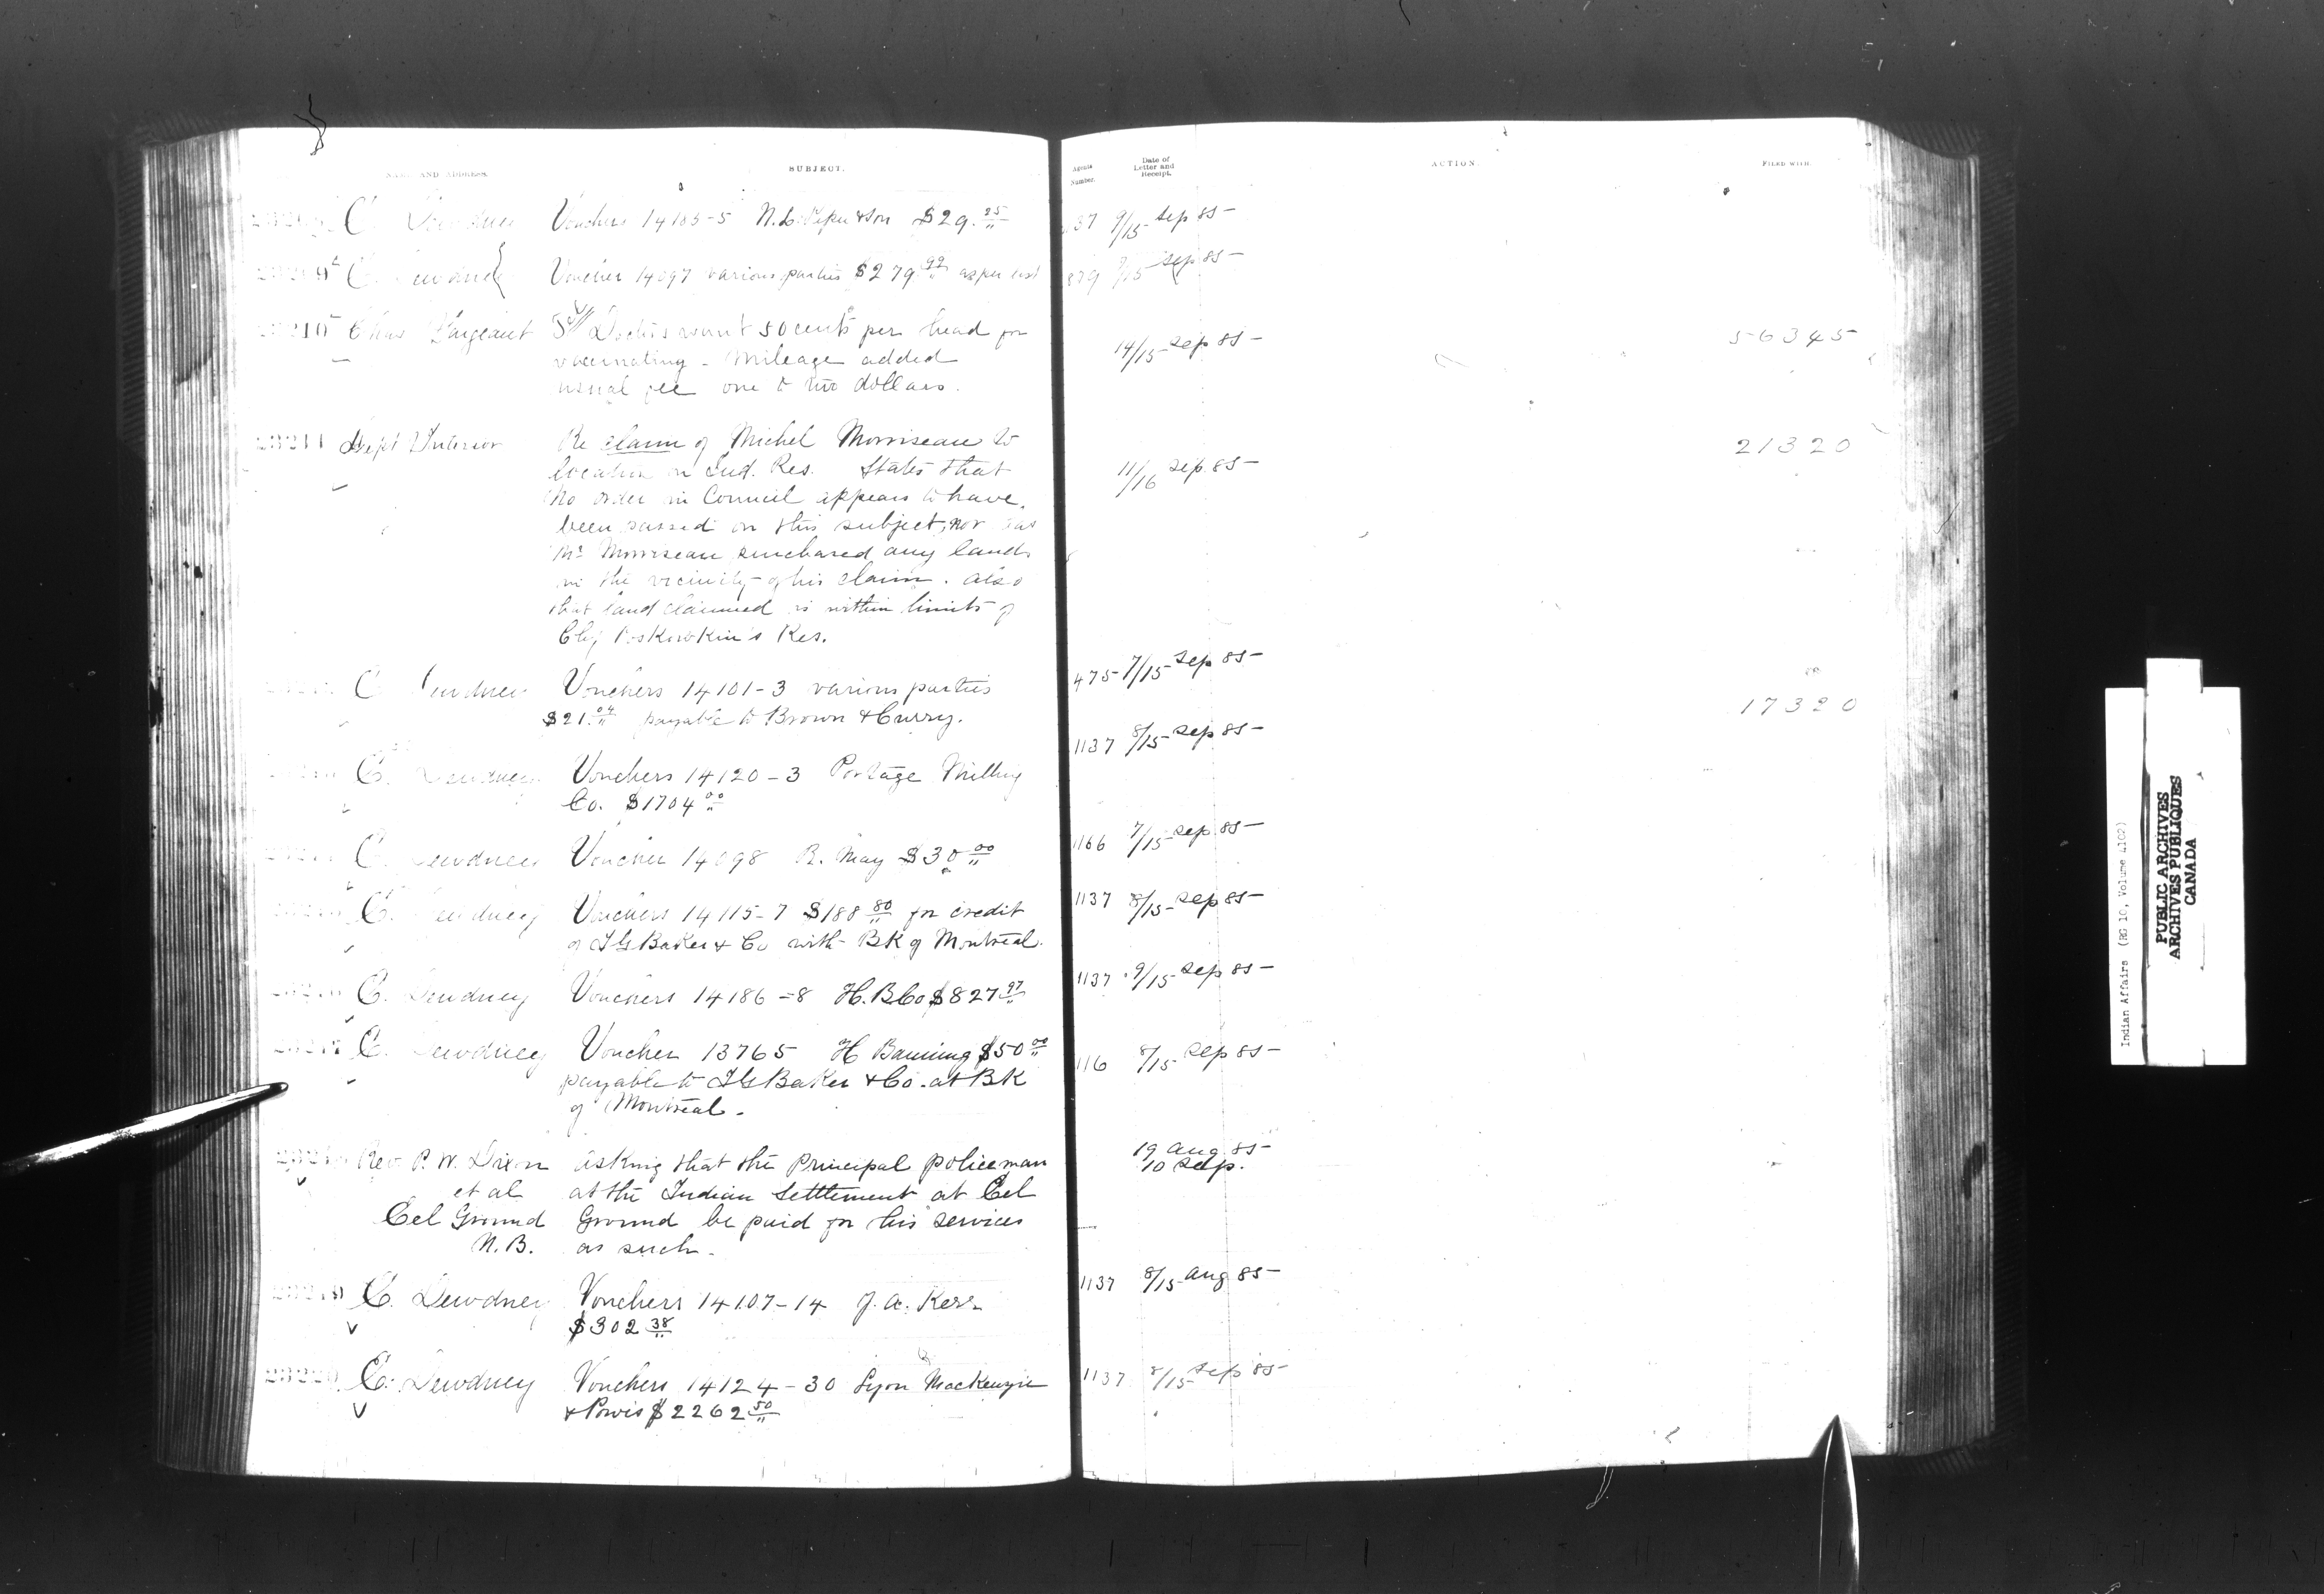 NAME AND ADDRESS.
SUBJECT.
Agents Number.
Date of Letter and Receipt.
ACTION.
FILED WITH.
C. Dewdney Vouchers 14183-5 & Son $29.25 9/15 Sep 85
C. Dewdney Voucher 14097 various parties $279.99 as per list 9/15 Sep 85
Sargeant Doctors want 50 cents per head for 14/15 Sep 85 56345
vaccinating - Mileage added
usual fee one to two dollars.
23211 Dept Interior Re claim of Michel Morriseau to 21320
location on Ind. Res. States that 11/16 Sep 85
no order in Council appears to have
been passed on this subject, nor has
Mr Morriseau purchased any lands
in the vicinity of his claim. also
that land claimed is within limits of
Res.
C. Dewdney Vouchers 14101-3 various parties 475 7/15 Sep 85
$21.04 payable to Brown & Curry. 17320
C. Dewdney Vouchers 14120-3 Portage Milling 1137 8/15 Sep 85
Co. $1704.00
C. Dewdney Voucher 14098 R. May $30.00 1166 7/15 Sep 85
C. Dewdney Vouchers 14115-7 $188.80 for credit 1137 8/15 Sep 85
of I G Baker & Co with Bk of Montreal.
C. Dewdney Vouchers 14186-8 H.B Co $827.97 1137 9/15 Sep 85
C. Dewdney Voucher 13765 H Banning $50.00 116 8/15 Sep 85
payable to I G Baker & Co. at BK
of Montreal.
Rev. P. W. Dixon asking that the Principal policeman 19 Aug. 85
et al at the Indian Settlement at Eel 10 Sep.
Eel Ground Ground be paid for his services
N.B. as such.
C. Dewdney Vouchers 14107-14 J. A. Kerr 1137 8/15 Aug 85
$302.38
23220 C. Dewdney Vouchers 14124-30 Lyon MacKenzie 1137 8/15 Sep 85
& Powis $2262.50
Indian Affairs (RG 10, Volume 4102)
PUBLIC ARCHIVES
ARCHIVES PUBLIQUES
CANADA